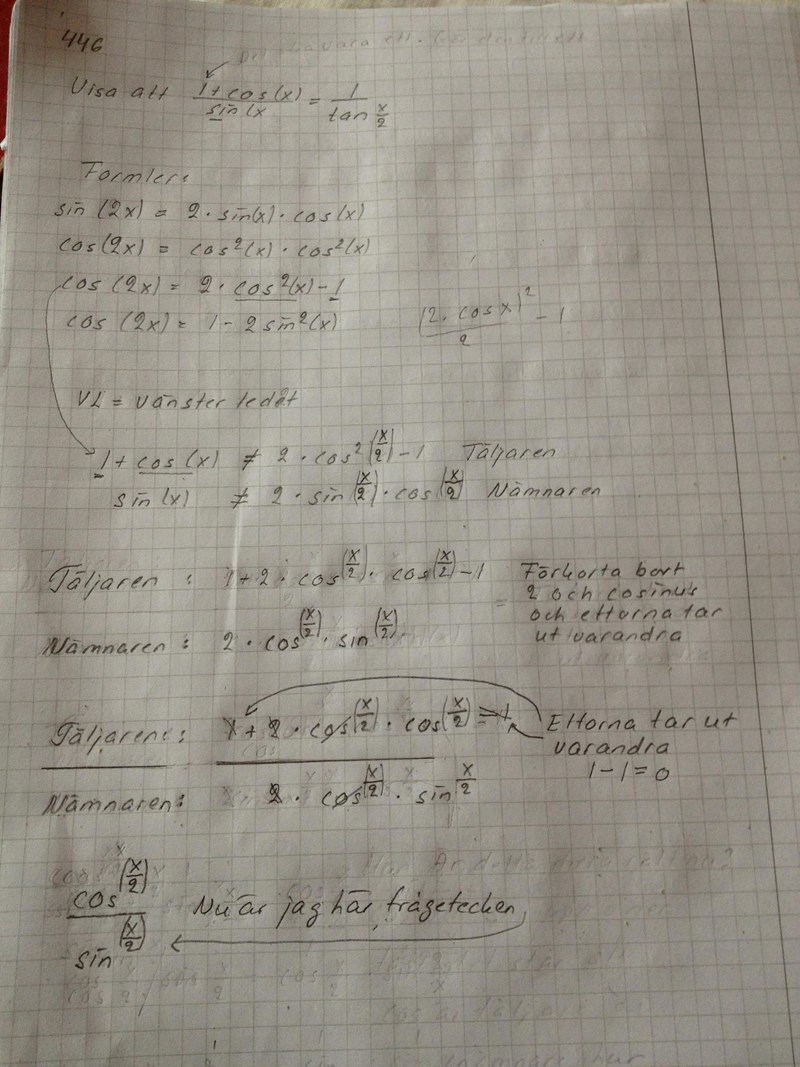 446
Visa att (1+cos(x))/(sin(x) = 1/(tan x/2)
Formler:
sin (2x) = 2 · sin(x) · cos(x)
cos(2x) = cos²(x) · cos²(x)
cos (2x) = 2 · cos²(x) - 1
cos (2x) = 1 - 2 sin²(x)
(2 · cos x)²/2 - 1
VL = vänster ledet
1 + cos (x) ≠ 2 · cos² (x/2) - 1 Täljaren
sin (x) ≠ 2 · sin (x/2) · cos (x/2) Nämnaren
Täljaren : 1 + 2 · cos (x/2) · cos (x/2) - 1
Nämnaren : 2 · cos (x/2) · sin (x/2)
= Förkorta bort
2 och cosinus
och ettorna tar
ut varandra
Täljaren : 1 + 2 · cos (x/2) · cos (x/2) - 1
Nämnaren : 2 · cos (x/2) · sin x/2
Ettorna tar ut
varandra
1 - 1 = 0
cos (x/2)
sin (x/2)
Nu är jag här, frågetecken